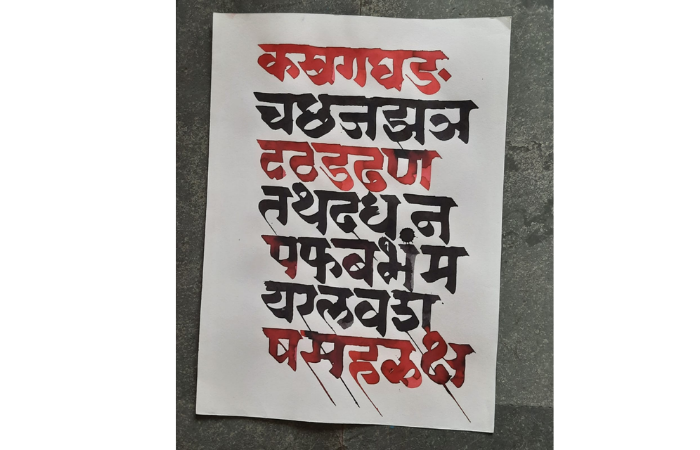 कखगघङ
चछजझञ
टठडढण
तथदधन
पफबभंम
यरलवश
षसहळक्ष